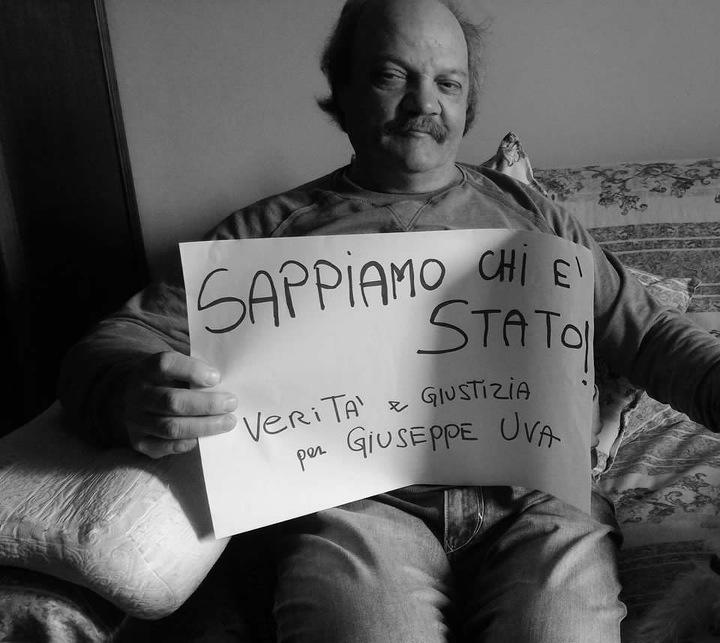 SAPPIAMO CHI E'
STATO!
VERITA' & GIUSTIZIA
per GIUSEPPE UVA